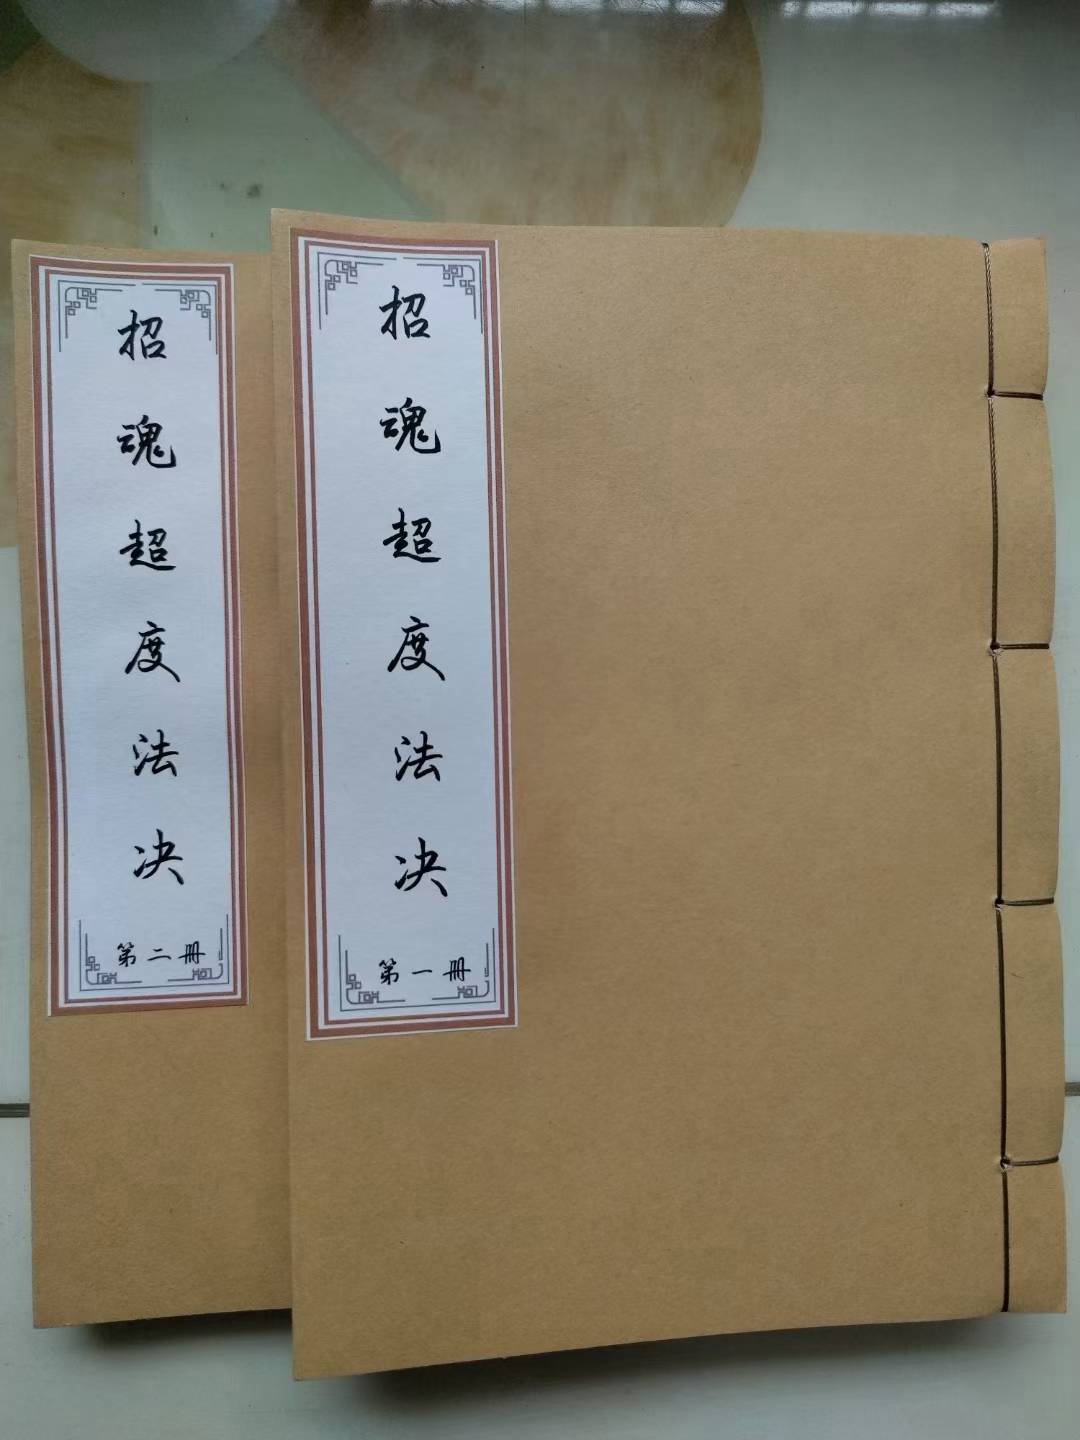 招魂超度法决
第一册
招魂超度法决
第二册